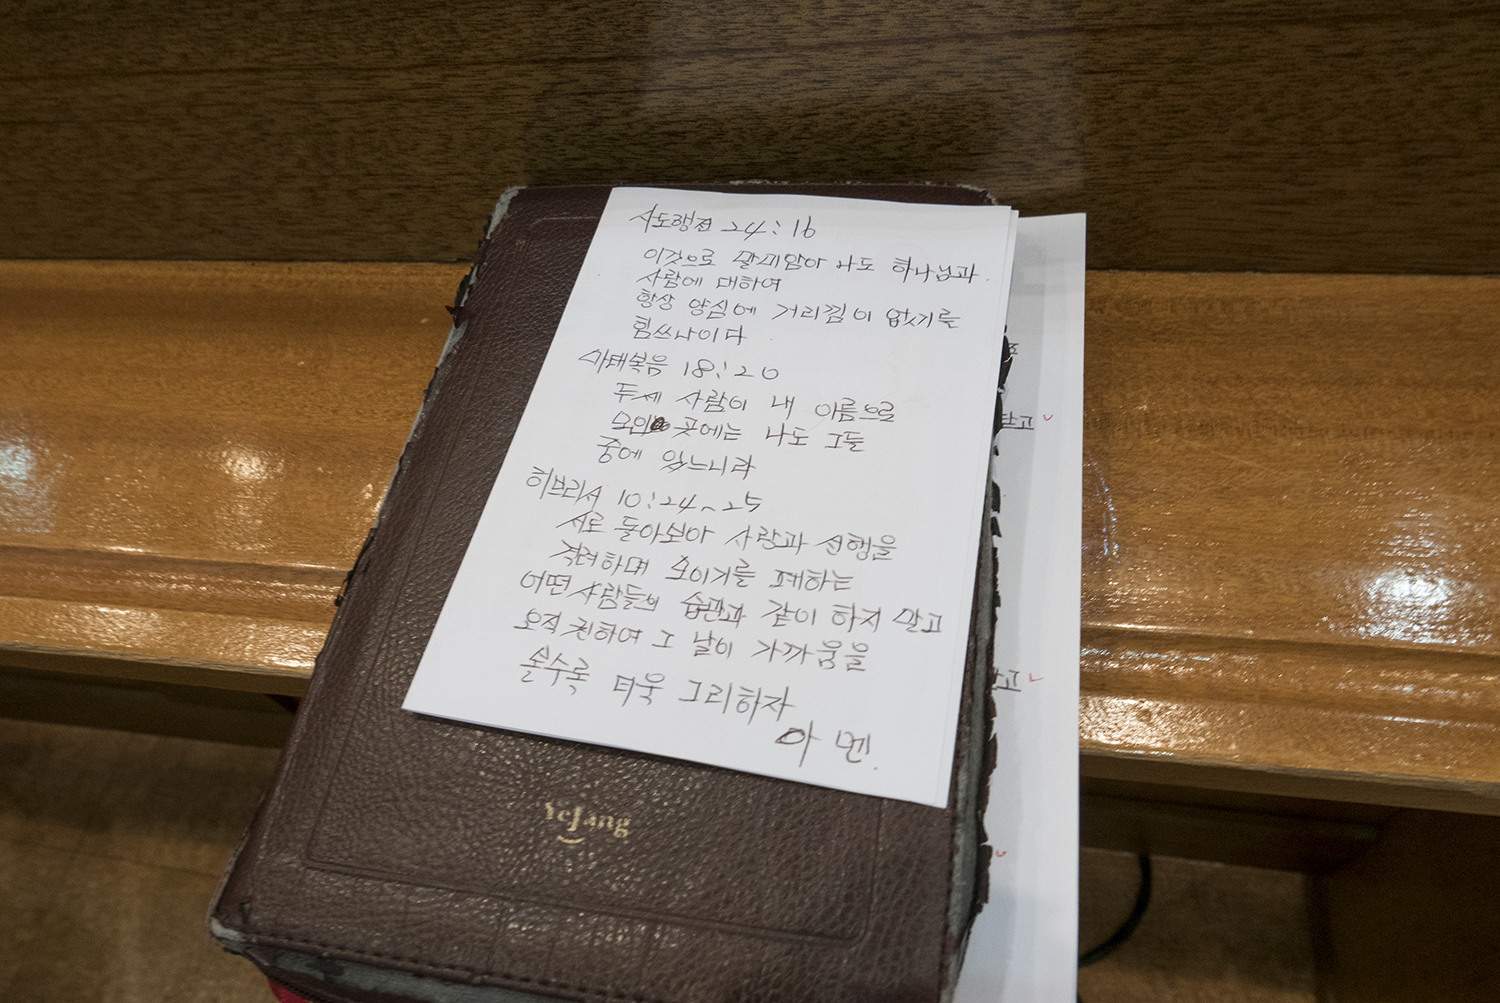 사도행전 24:16
이것으로 말미암아 나도 하나님과
사람에 대하여
항상 양심에 거리낌이 없기를
힘쓰나이다
마태복음 18:20
두세 사람이 내 이름으로
모인 곳에는 나도 그들
중에 있느니라
히브리서 10:24~25
서로 돌아보아 사랑과 선행을
격려하며 모이기를 폐하는
어떤 사람들의 습관과 같이 하지 말고
오직 권하여 그 날이 가까움을
볼수록 더욱 그리하자
아멘.
Yejang